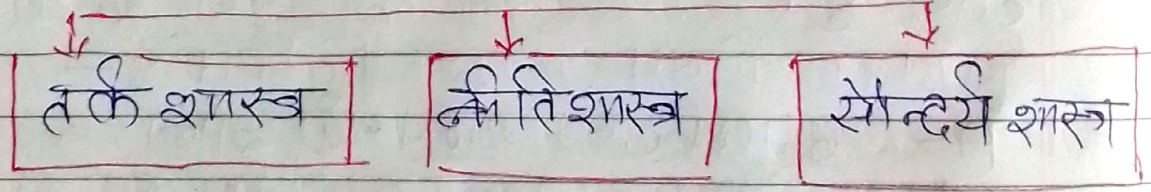 तर्क शास्त्र नीतिशास्त्र सौन्दर्य शास्त्र